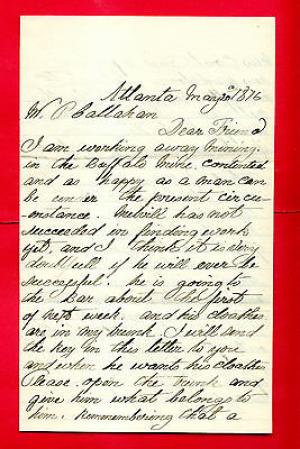 Atlanta May 20 1876
W. P. Callahan
Dear Friend
I am working away mining
in the Buffalo Mine. contented
and as happy as a man can
be under the present circu-
mstance. has not
succeeded in finding work
yet, and I think it is very
doubtfull if he will ever be
successful. he is going to
the Bar about the first
of next week. and his cloathes
are in my trunk I will send
the key in this letter to you
and when he wants his cloathes
Please open the trunk and
give him what belongs to
him. Remmembering that a